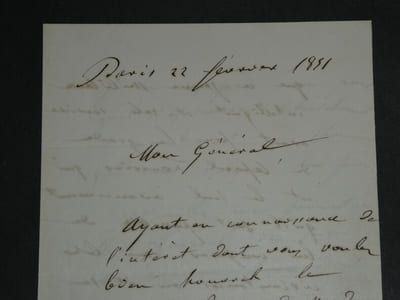 Paris 22 février 1851
Mon Général
Ayant eu connaissance de
l'intérêt dont vous voulez
bien honorer le